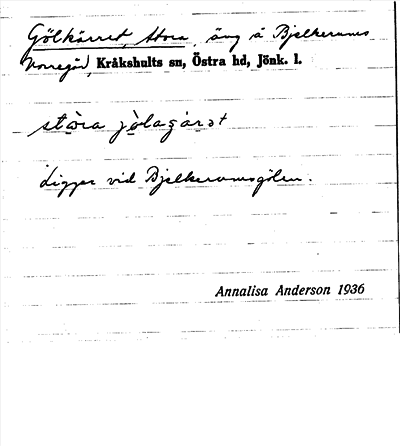 Gölkärret, Stora, äng å Bjelkerums
Norregård, Kråkshults sn, Östra hd, Jönk. l.
stȯra jȯlagárət
Ligger vid Bjelkerumsgölen.
Annalisa Anderson 1936